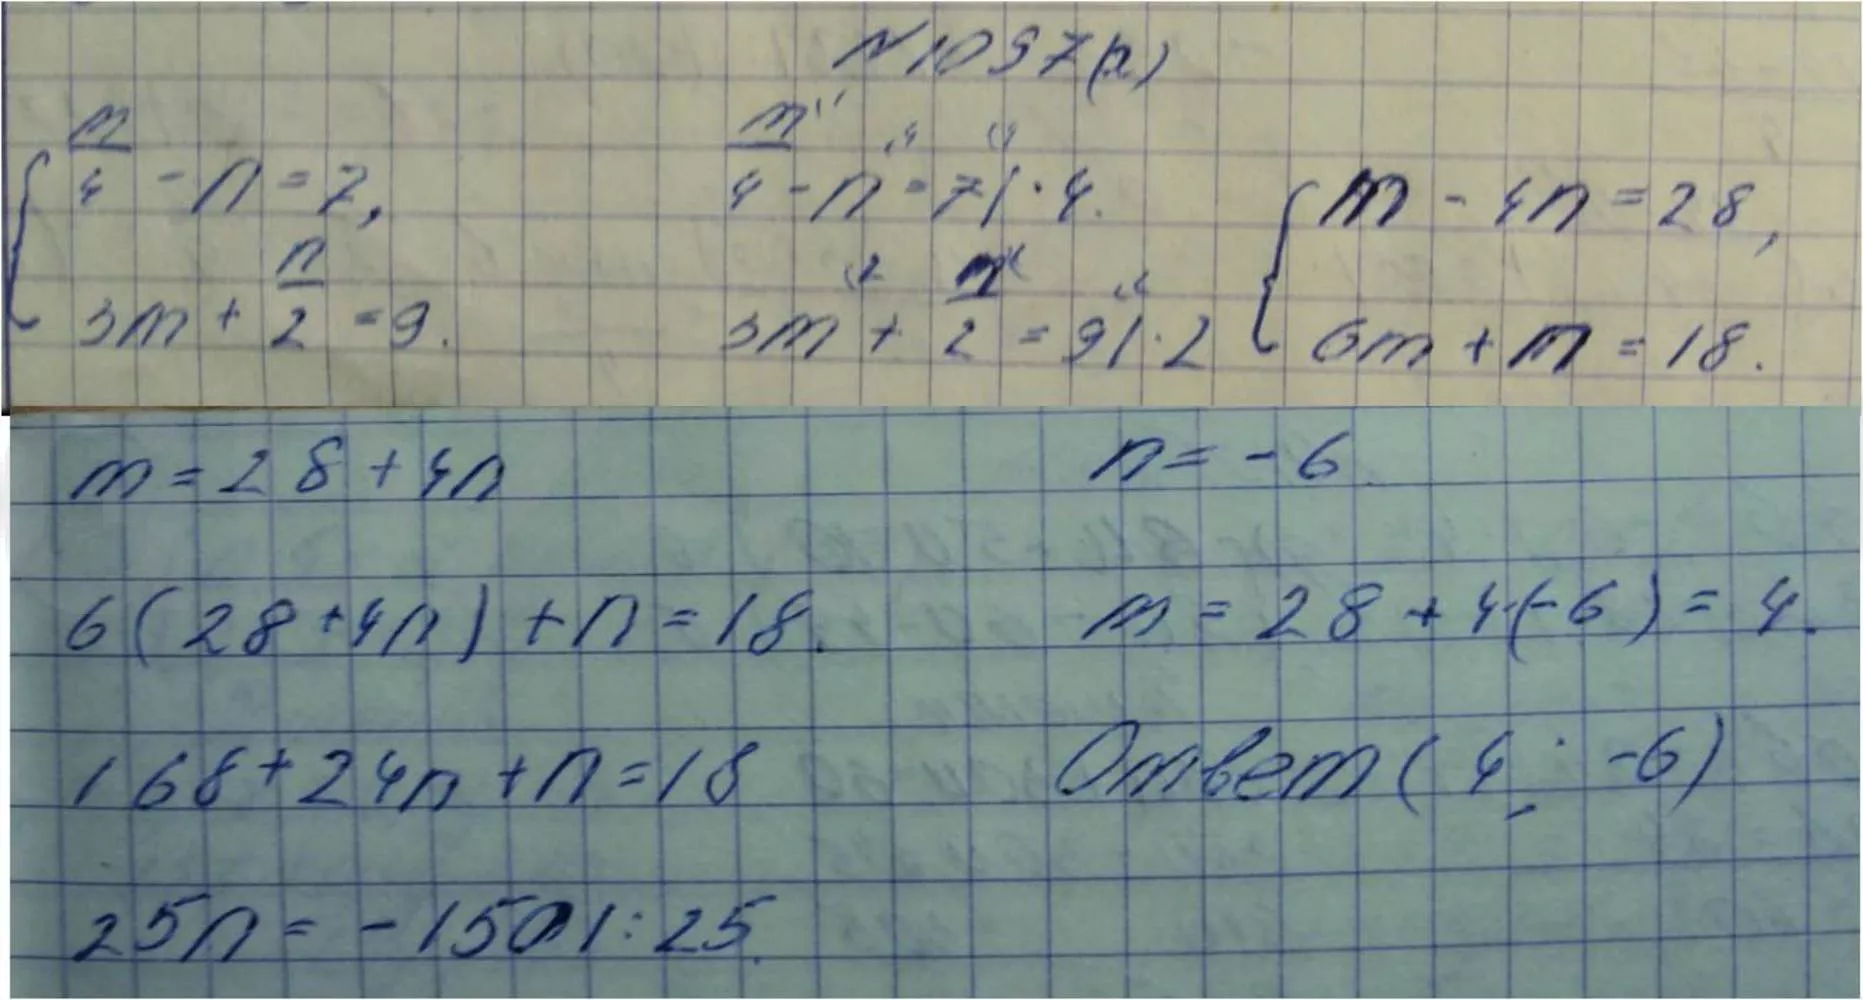 N 1097(а)
m/4 - n = 7,
3m + n/2 = 9.
m/4 - n = 7 | · 4.
3m + n/2 = 9 | · 2
m - 4n = 28,
6m + n = 18.
m = 28 + 4n
6(28 + 4n) + n = 18.
168 + 24n + n = 18
25n = -150 | : 25.
n = -6.
m = 28 + 4·(-6) = 4.
Ответ (4; -6)